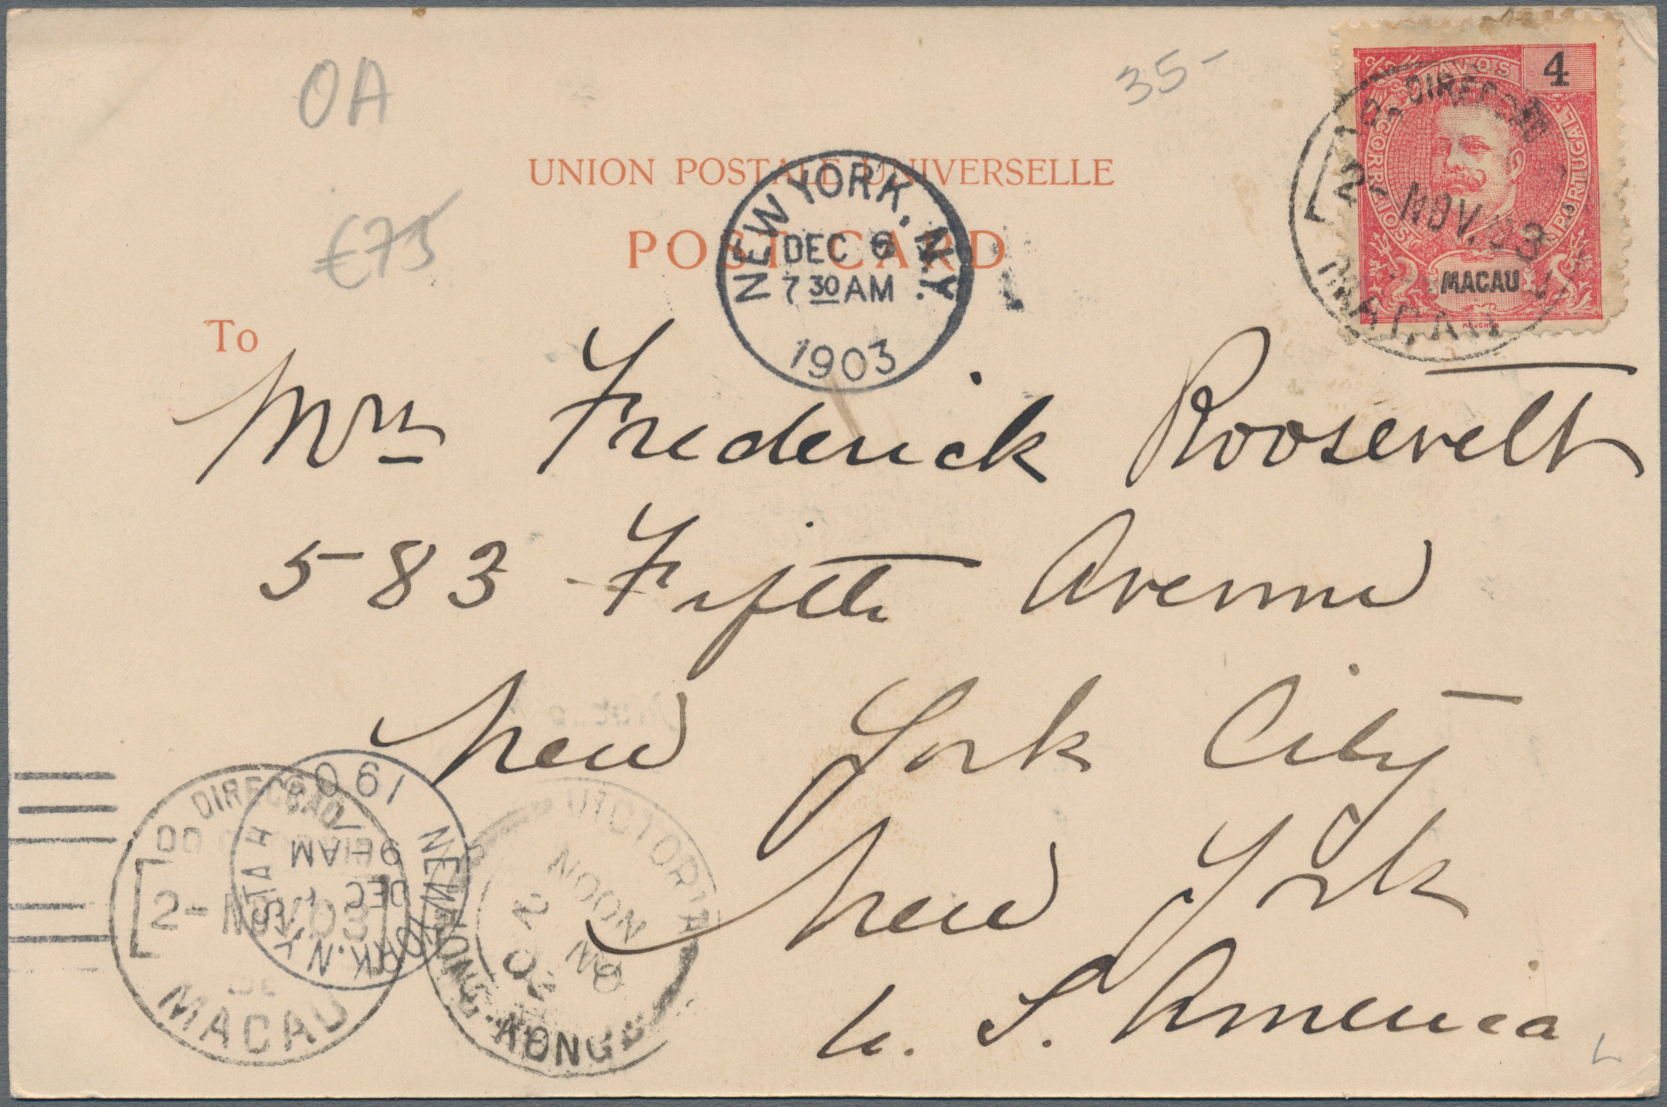 OA
35-
UNION POSTALE UNIVERSELLE
POST CARD
€75
NEW YORK, N.Y.
DEC 6
7 30 AM
1903
4
AVOS
CORREIOS PORTUGAL
MACAU
MOUCHON
DIRECÇÃO
2- NOV. 03
MACAU
To
Mrs Frederick Roosevelt
583 Fifth Avenue
New York City
New York
U. S. America
DIRECÇÃO
DO
2- NOV. 03
DE
MACAU
NEW YORK, N.Y. STA H
DEC
9 AM
190
VICTORIA
NOON
2
NO
03
HONG-KONG